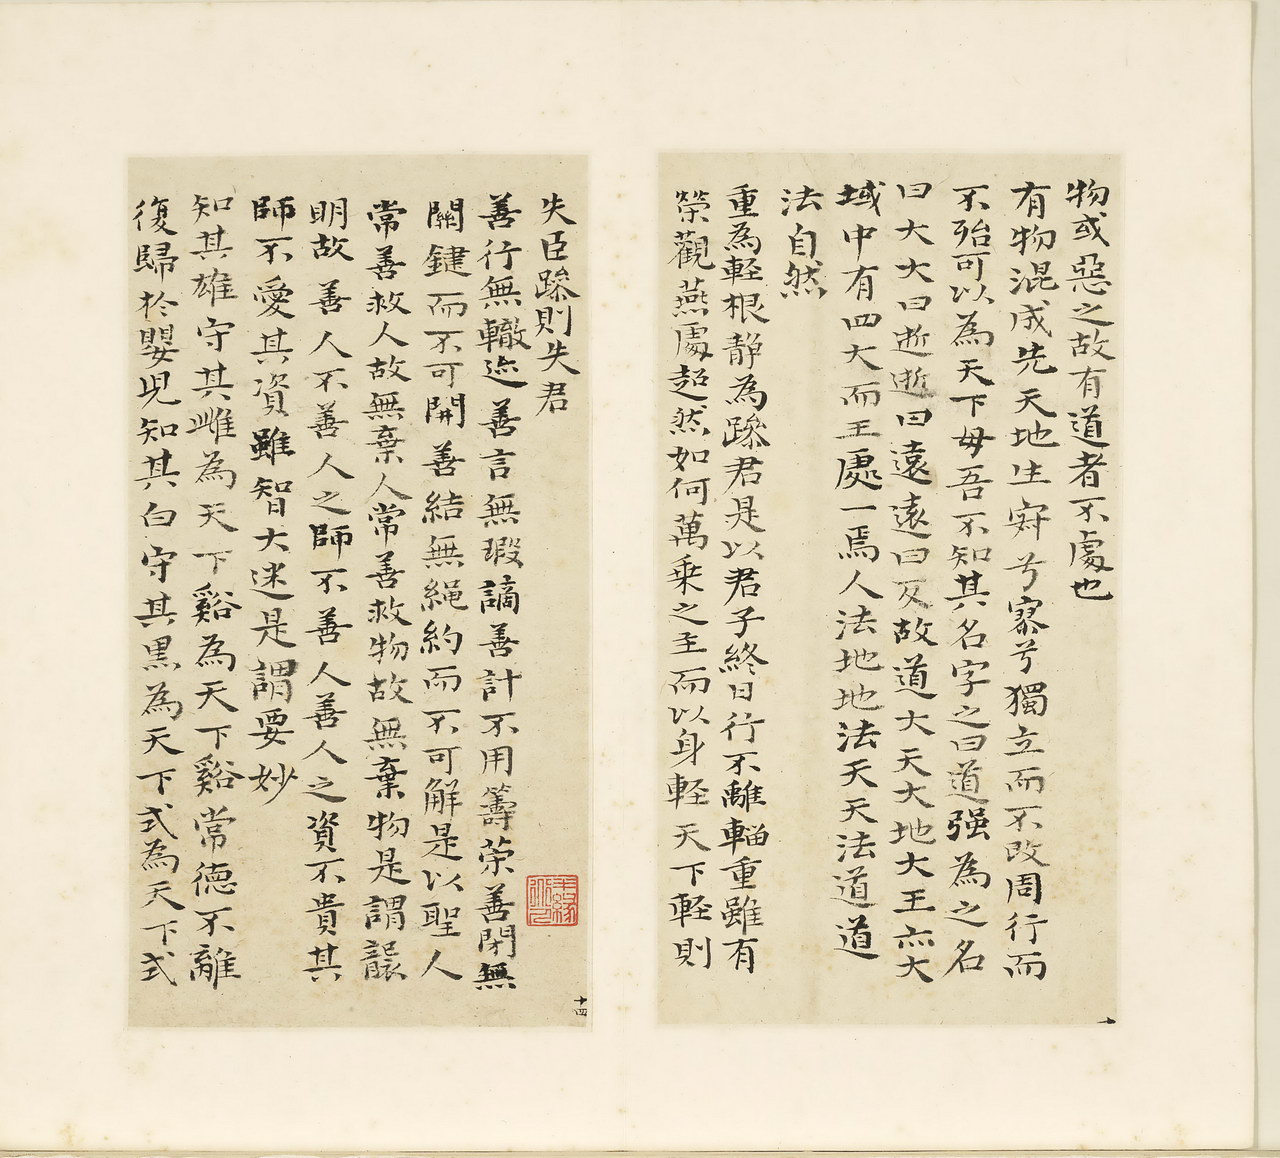 物或惡之故有道者不處也
有物混成先天地生寂兮寥兮獨立而不改周行而
不殆可以為天下母吾不知其名字之曰道强為之名
曰大大曰逝逝曰遠遠曰反故道大天大地大王亦大
域中有四大而王處一焉人法地地法天天法道道
法自然
重為輕根静為躁君是以君子終日行不離輜重雖有
榮觀燕處超然如何萬乗之主而以身輕天下輕則
失臣躁則失君
善行無轍迹善言無瑕讁善計不用籌筞善閉無
關鍵而不可開善結無繩約而不可解是以聖人
常善救人故無棄人常善救物故無棄物是謂襲
明故善人不善人之師不善人善人之資不貴其
師不愛其資雖智大迷是謂要妙
知其雄守其雌為天下谿為天下谿常德不離
復歸於嬰児知其白守其黒為天下式為天下式
十四